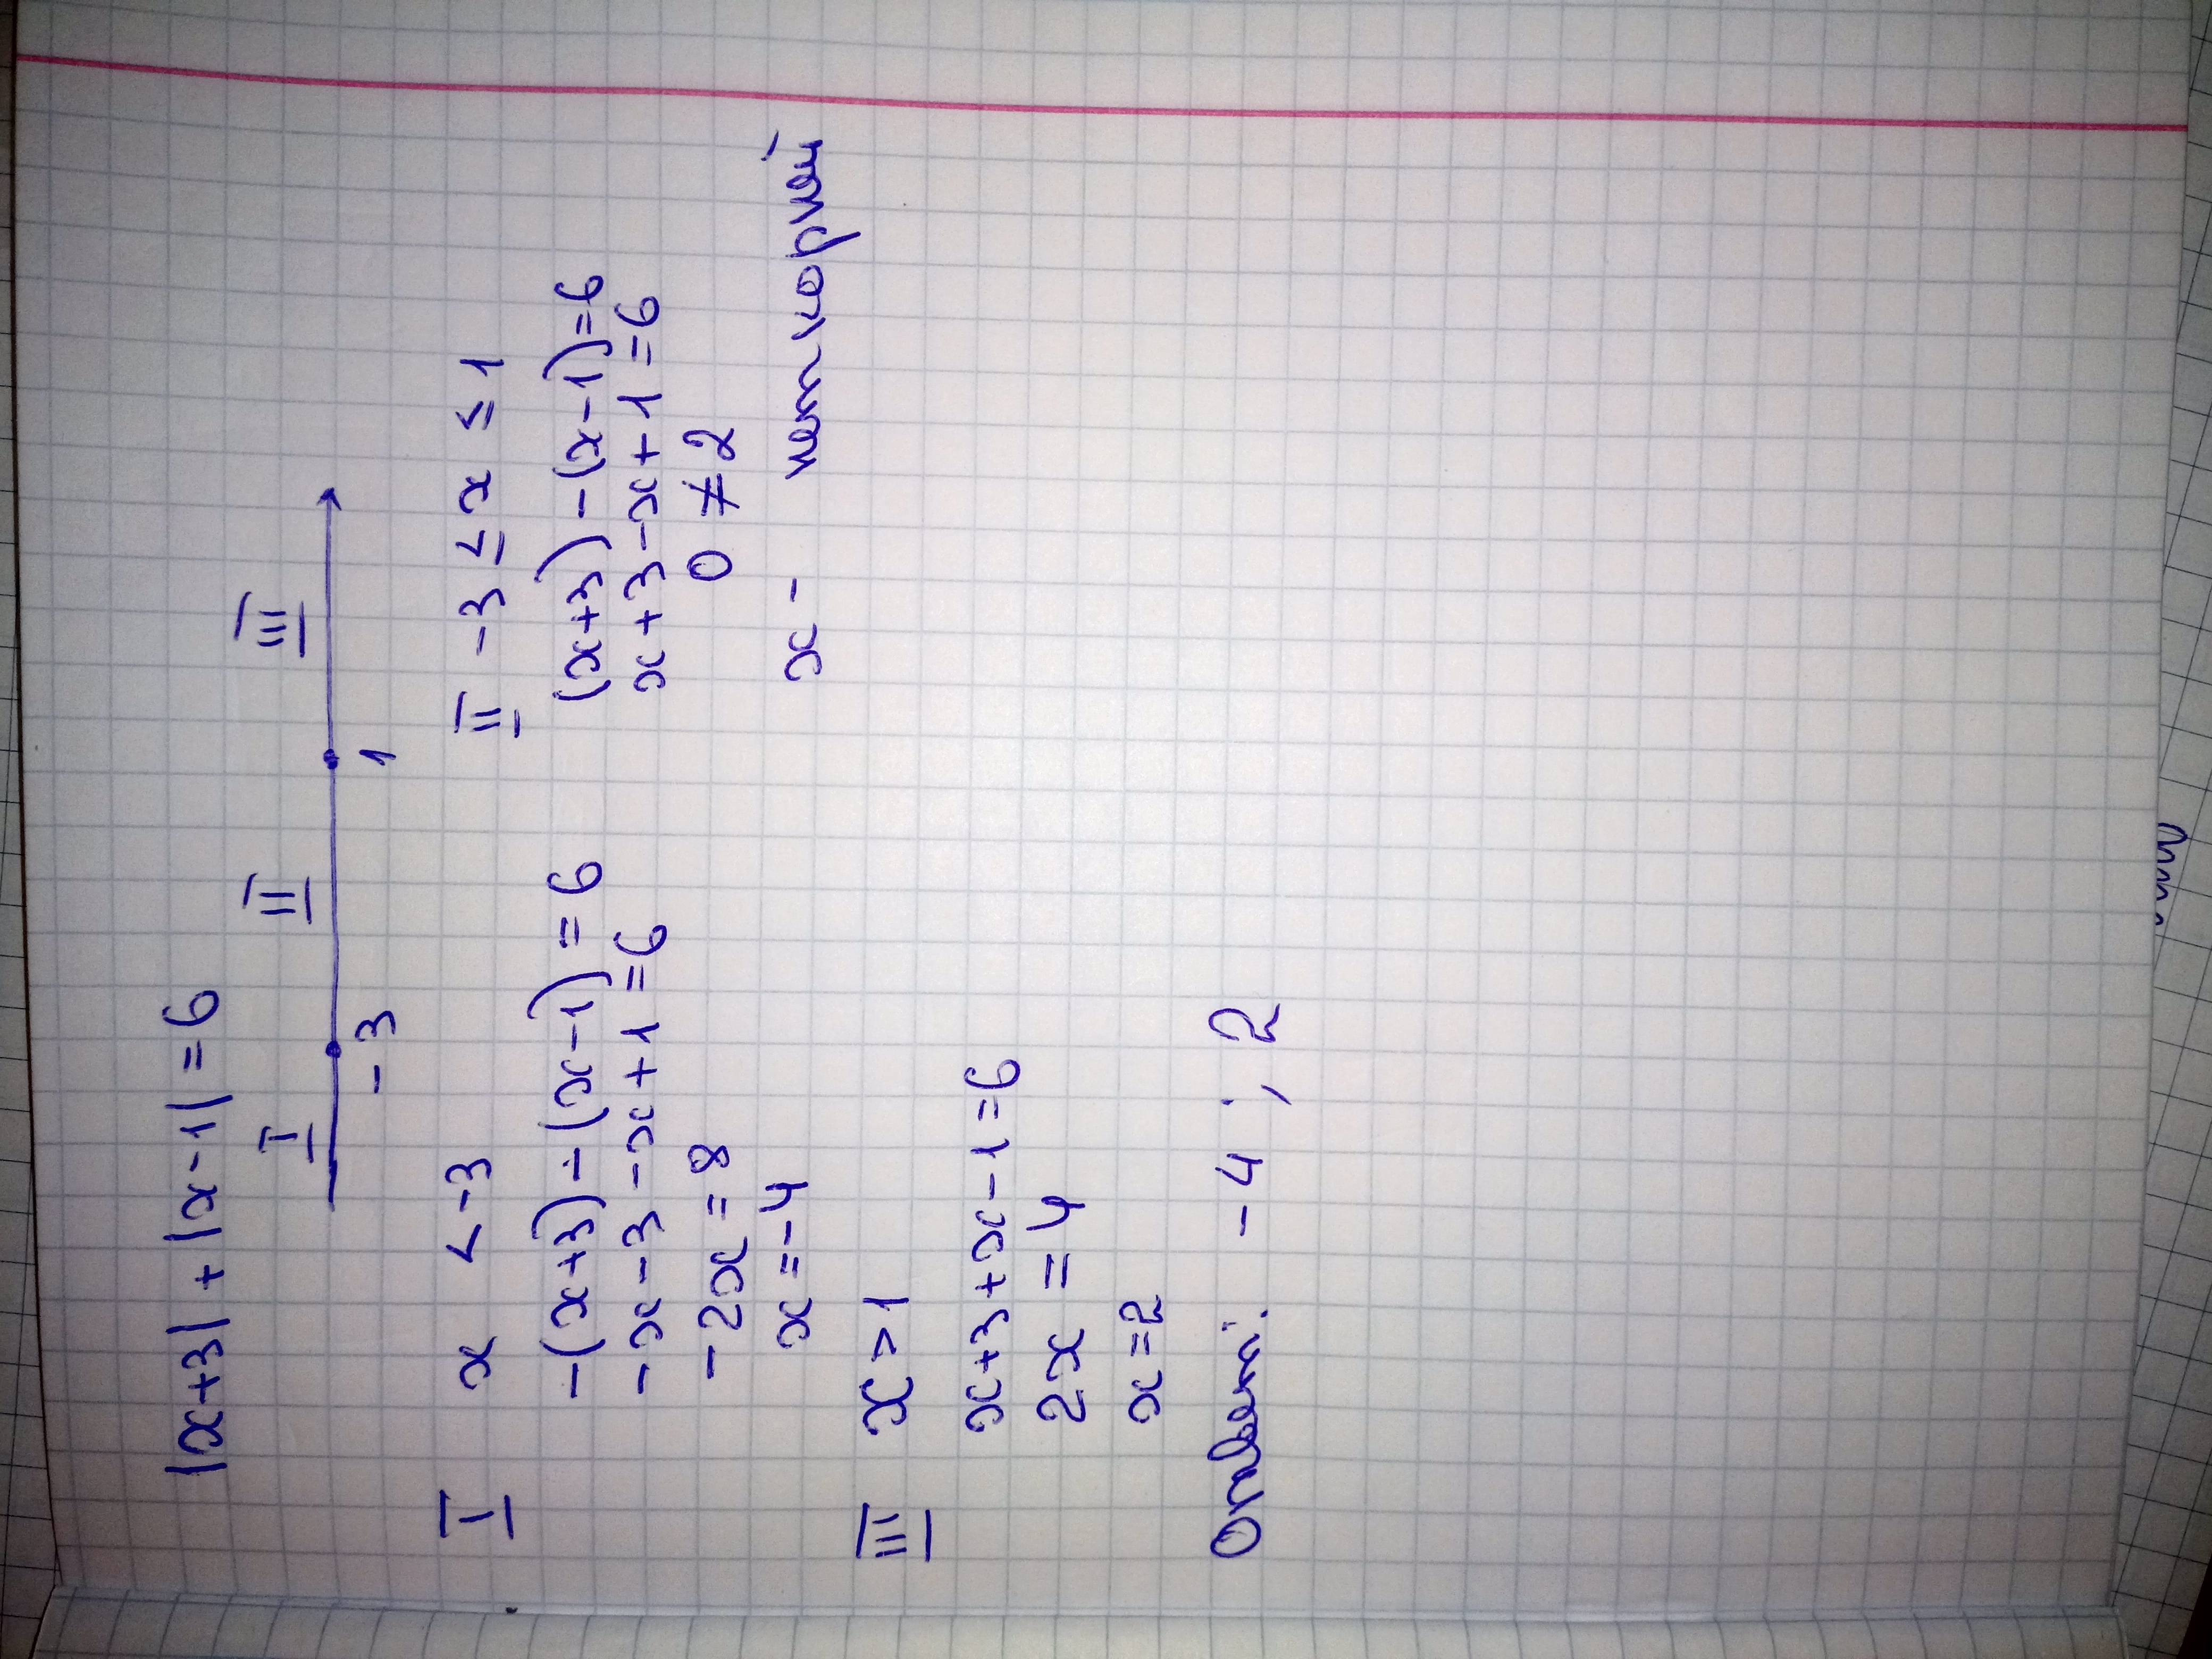 |x+3| + |x-1| = 6
I II III
-3 1
I x < -3
-(x+3) - (x-1) = 6
-x-3-x+1=6
-2x=8
x=-4
II -3 ≤ x ≤ 1
(x+3)-(x-1)=6
x+3-x+1=6
0≠2
x - нет корней
III x>1
x+3+x-1=6
2x=4
x=2
Ответ: -4; 2